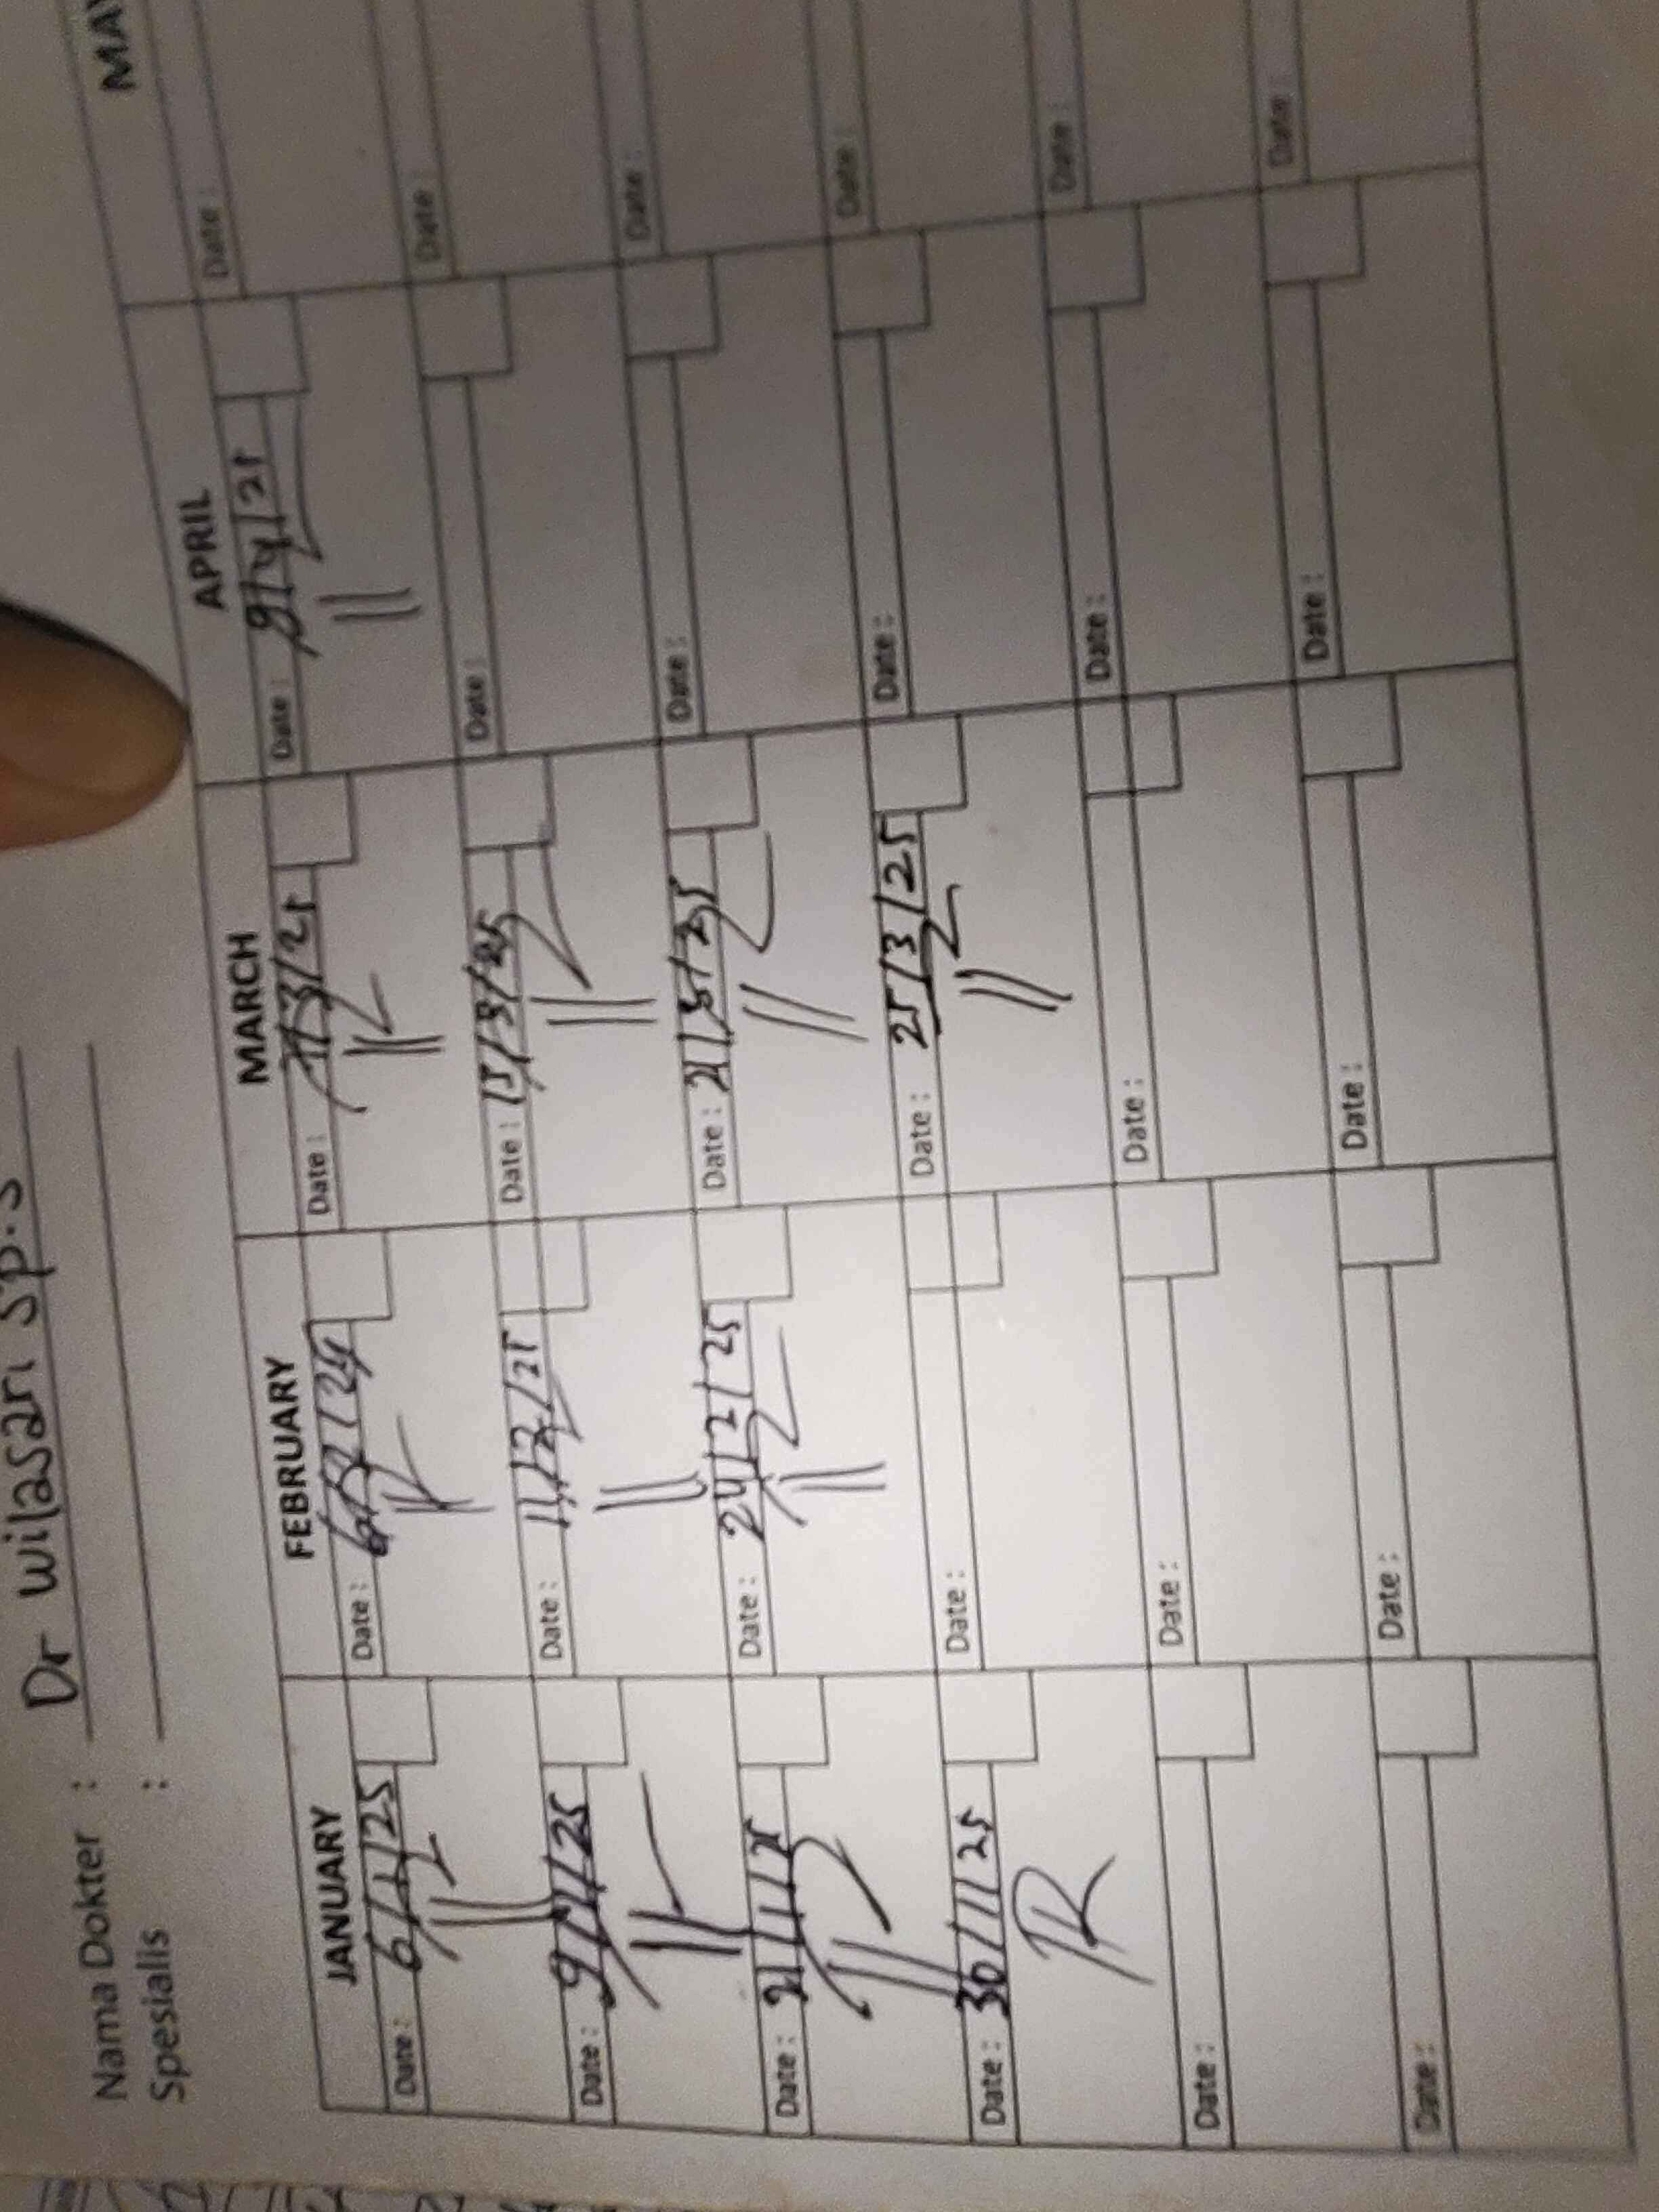 Nama Dokter : Dr wilasari Sp.S
Spesialis :
JANUARY FEBRUARY MARCH APRIL MAY
Date : 6/1/25 Date : 6/2/24 Date : 7/3/25 Date : 9/4/25 Date :
Date : 9/1/25 Date : 11/2/25 Date : 15/3/25 Date : Date :
Date : 21/1/25 Date : 24/2/25 Date : 21/3/25 Date : Date :
Date : 30/1/25 Date : Date : 25/3/25 Date : Date :
Date : Date : Date : Date : Date :
Date : Date : Date : Date : Date